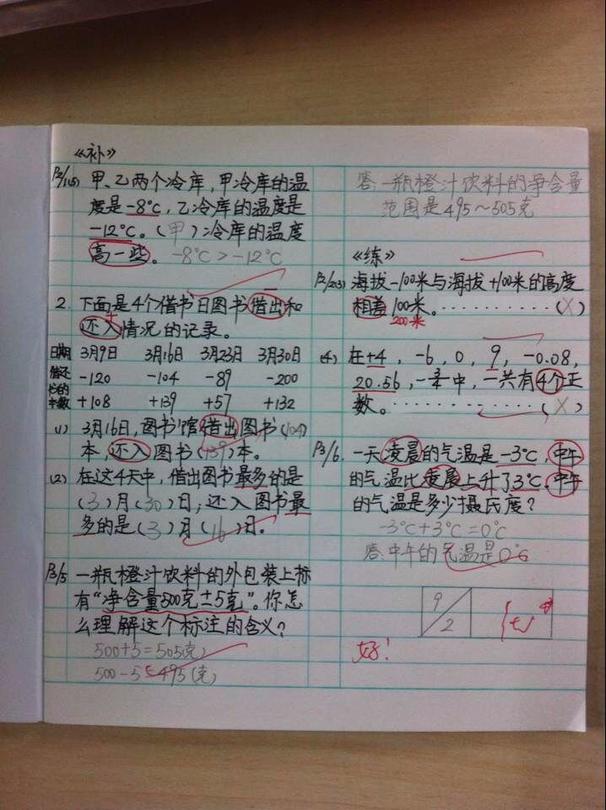 《补》
甲、乙两个冷库,甲冷库的温
度是-8℃,乙冷库的温度是
-12℃。(甲)冷库的温度
高一些。 -8℃>-12℃
2. 下面是4个借书日图书借出和
还入情况的记录。
日期 3月9日 3月16日 3月23日 3月30日
-120 -104 -89 -200
+108 +139 +57 +132
(1) 3月16日,图书馆借出图书(104)
本,还入图书(139)本。
(2) 在这4天中,借出图书最多的是
(3)月(30)日;还入图书最
多的是(3)月(16)日。
P3/5 一瓶橙汁饮料的外包装上标
有“净含量500克±5克”。你怎
么理解这个标注的含义?
500+5=505(克)
500-5=495(克)
答:一瓶橙汁饮料的净含量
范围是495~505克
《练》
海拔-100米与海拔+100米的高度
相差100米。…………(X)
200米
(4) 在+4,-6,0,9,-0.08,
20.56,-中,一共有4个正
数。…………(X)
P3/6. 一天凌晨的气温是-3℃,中午
的气温比凌晨上升了3℃,中午
的气温是多少摄氏度?
-3℃+3℃=0℃
答:中午的气温是0℃
9/2
好!